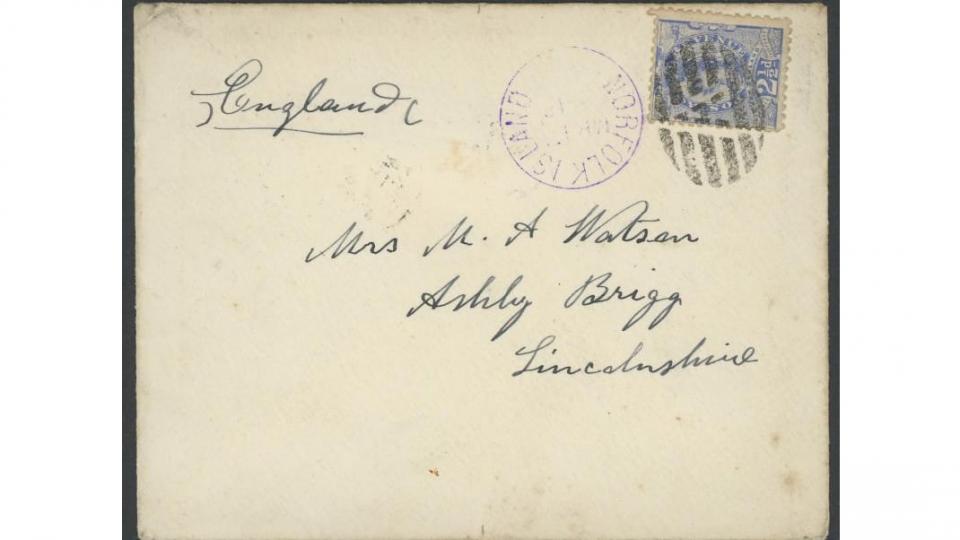 England
NORFOLK ISLAND
REVENUE
2½d
Mrs M. A Watson
Ashby Brigg
Lincolnshire